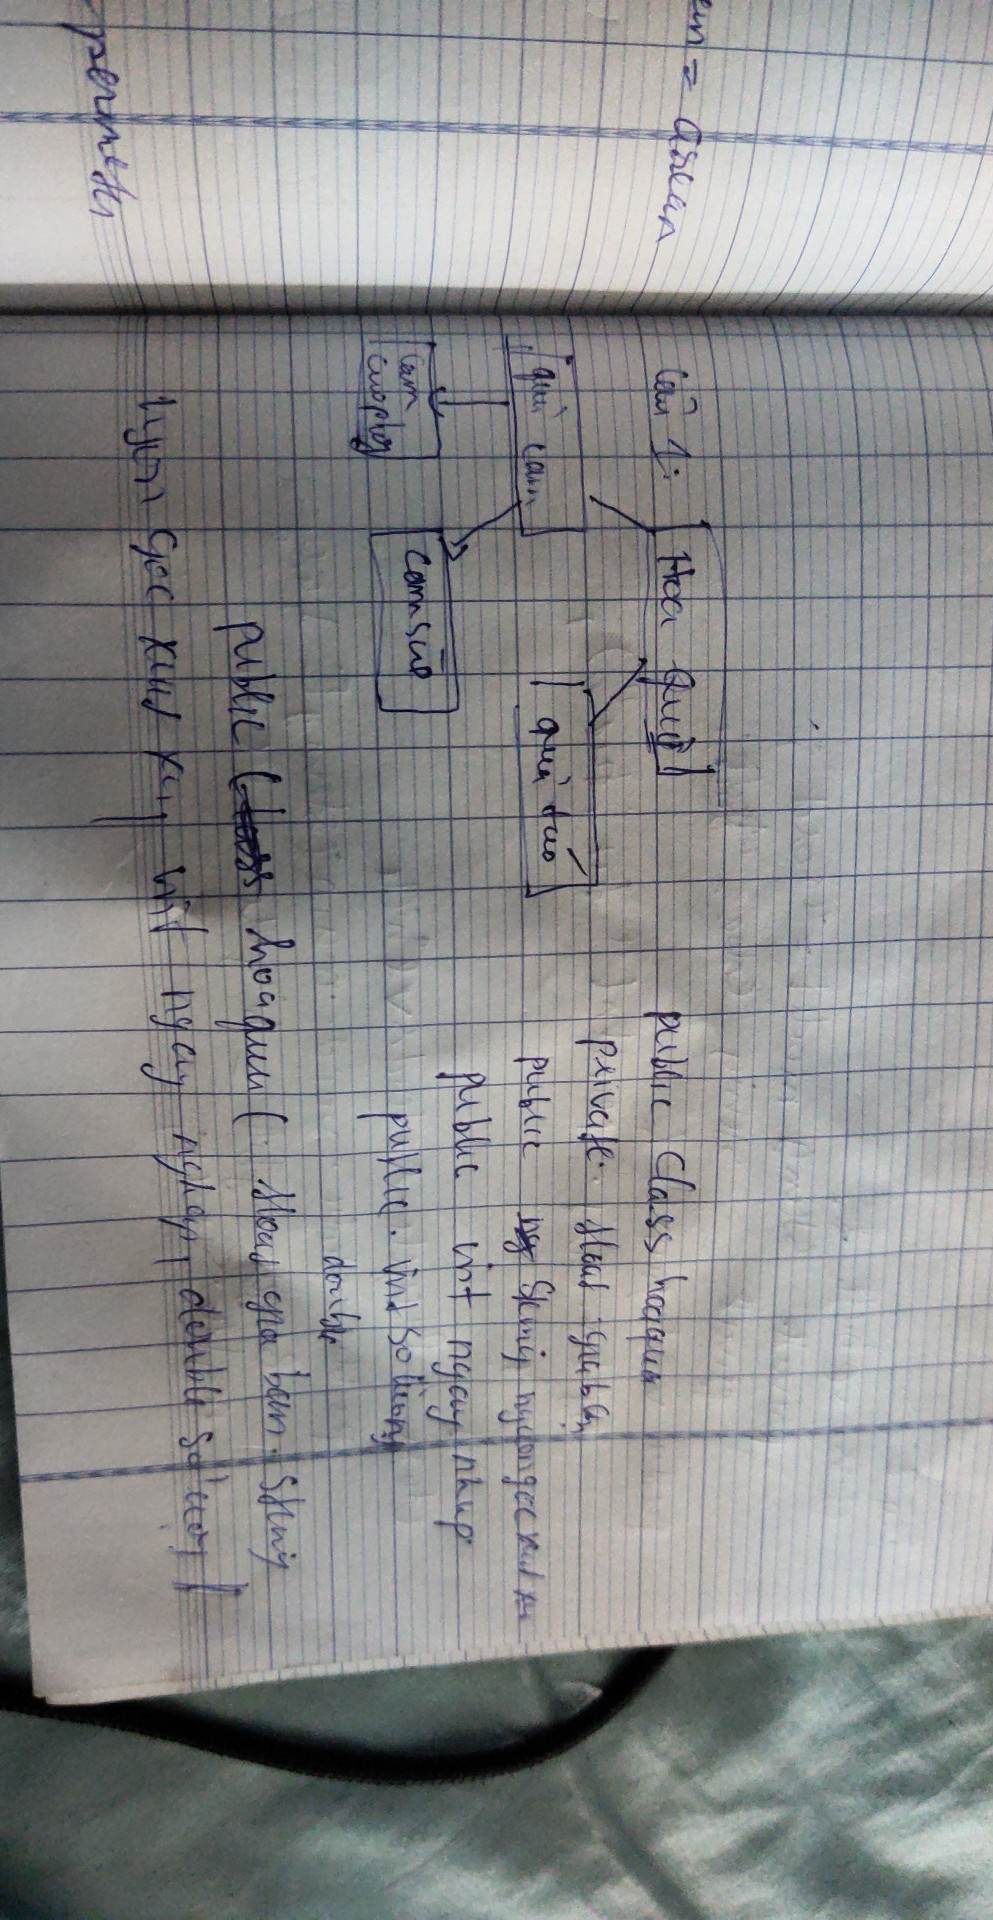 = asean
Câu 1: Hoa quả
quả cam
quả táo
Cam
caophog
Camsàp
public Class hoaqua
private float giaban
public String nguongocxuatxu
public int ngay nhap
public int so luong
double
public hoaquu ( float gia ban. String
nguon goc xuat xu, int ngay nghap, double số lượng )